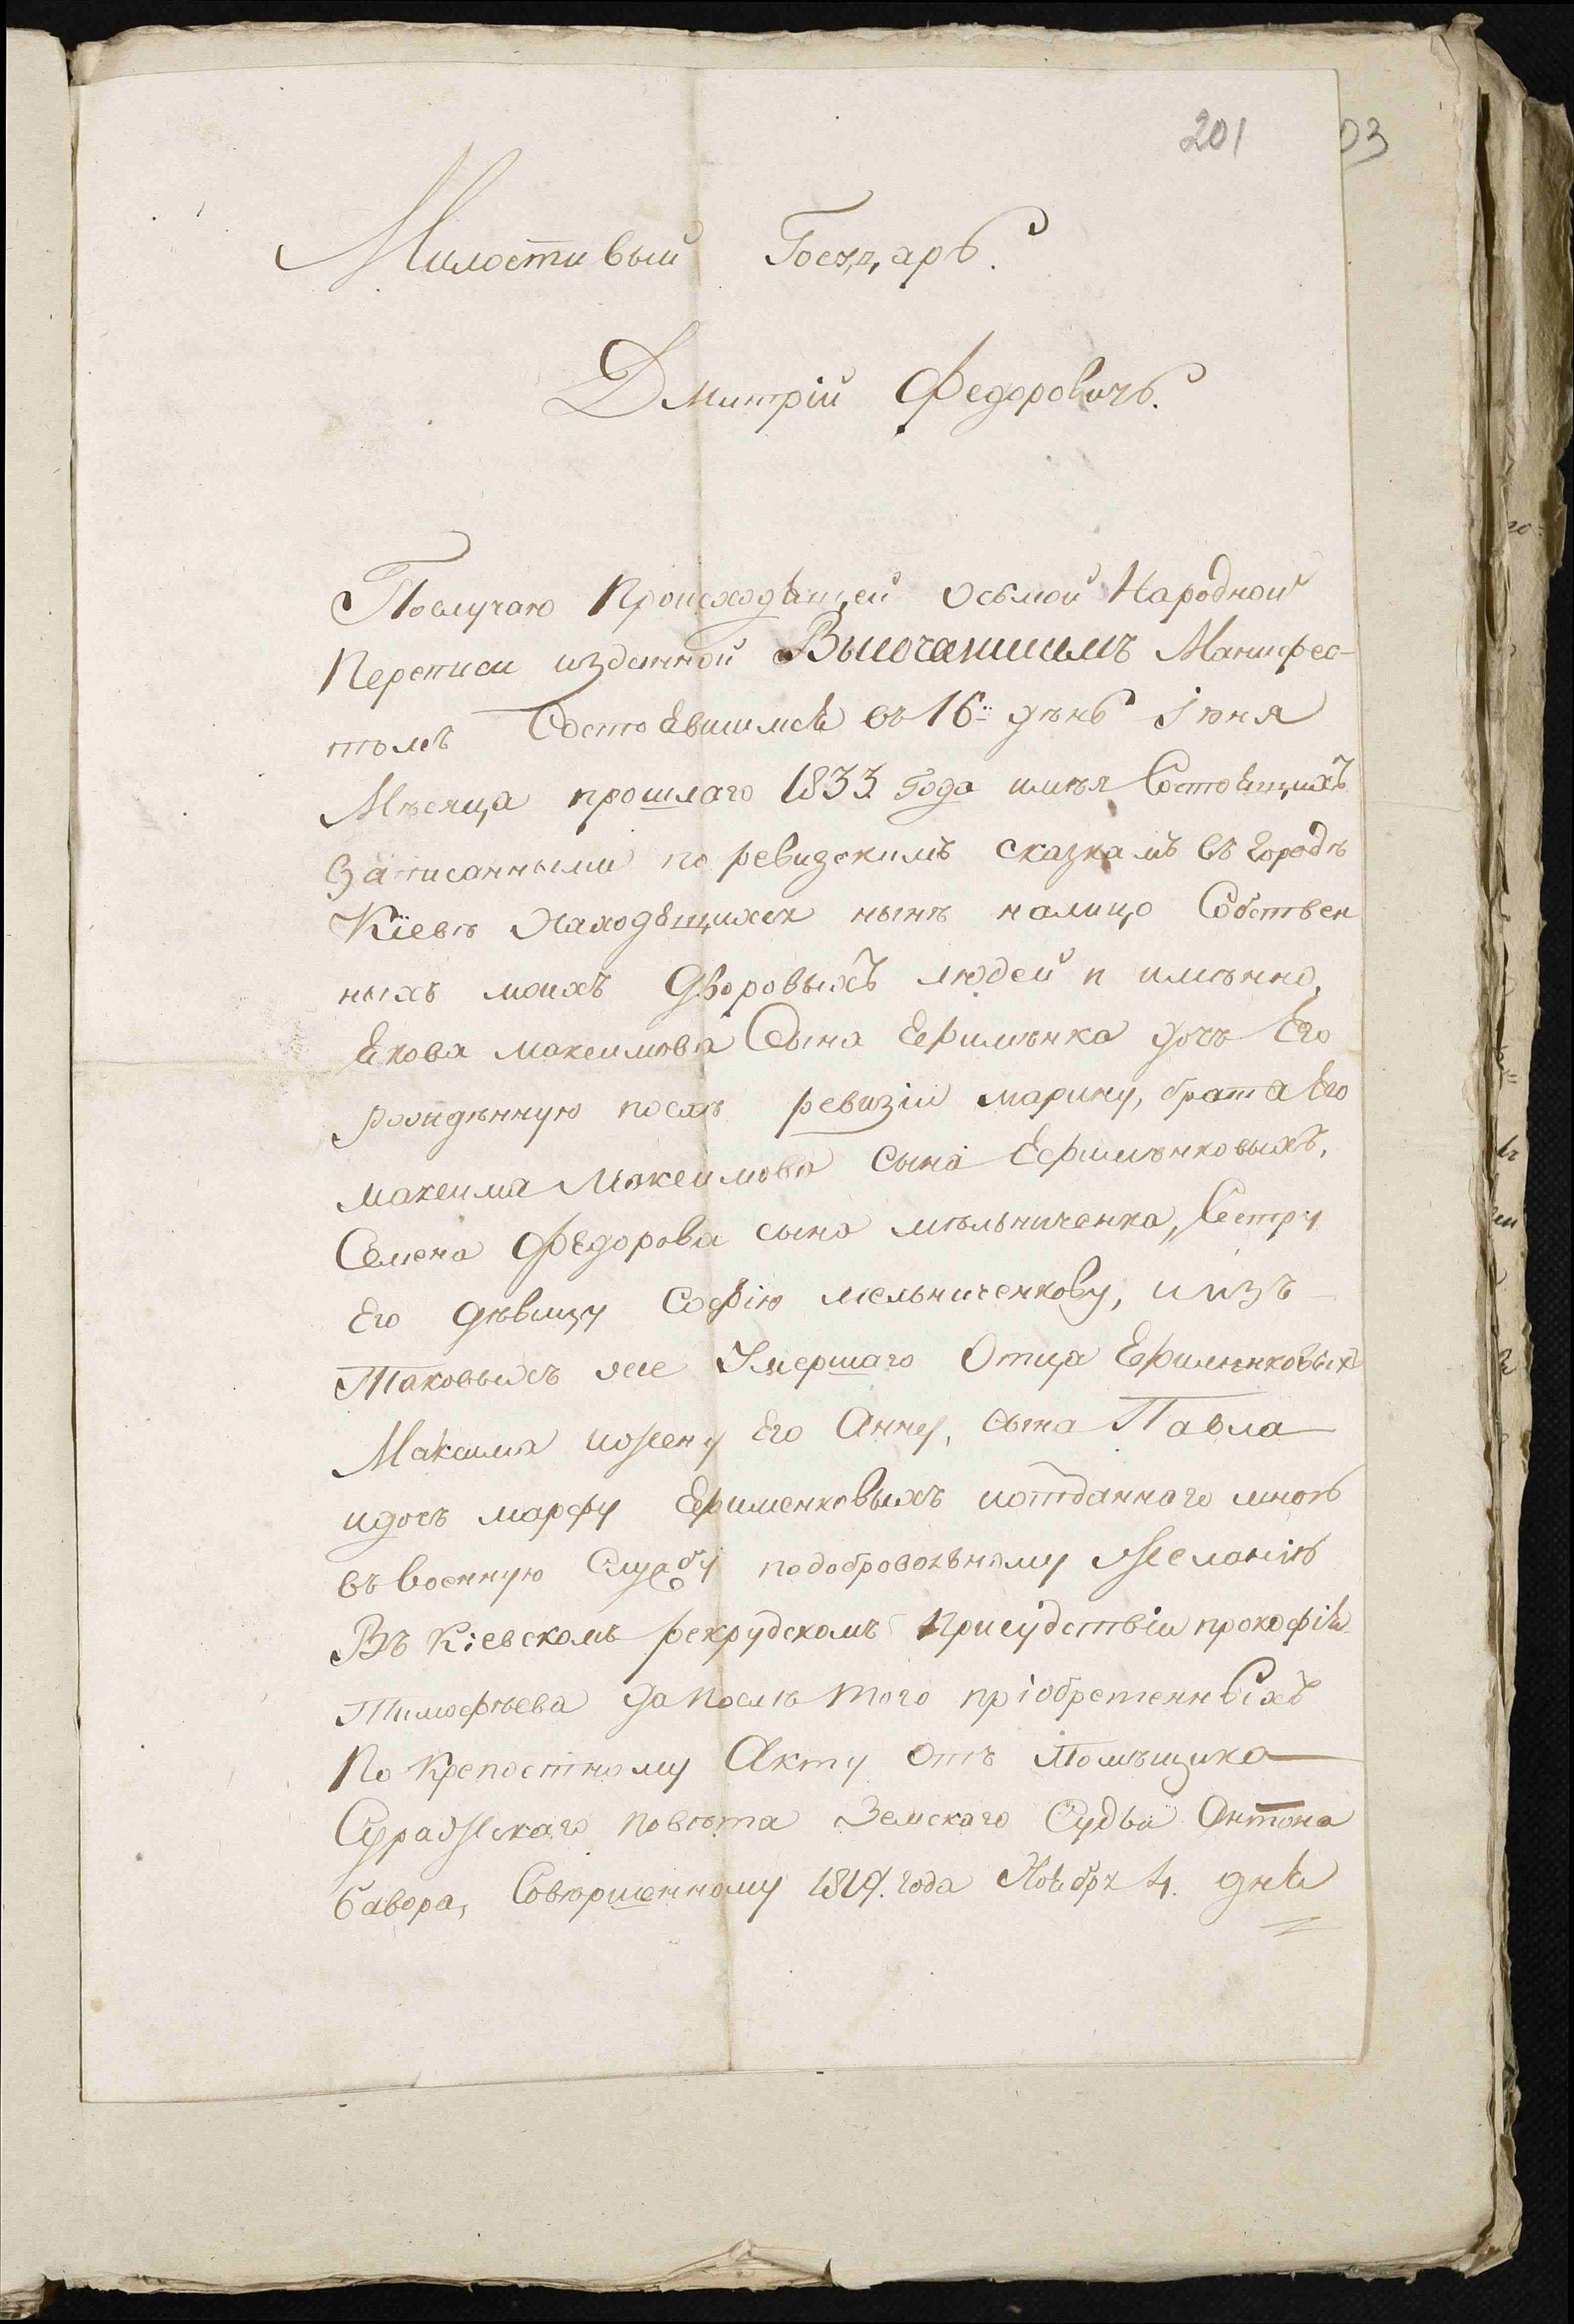 201
03
Милостивый Государь.
Дмитрій Федоровичь.
Послучаю Происходящей Осьмой Народной
Переписи изданной Высочайшимъ Манифес-
томъ Состоявшимся въ 16й дѣнь Іюня
Мѣсяца прошлаго 1833 года имѣя Состоящихъ
Записанными по ревизскимъ сказкамъ въ городѣ
Кіевѣ Находящихся нынѣ налицо Собствен
ныхъ моихъ Дворовыхъ людей и имѣнно,
Якова максимова Сына Ефимѣнка дочь Его
рождѣнную послѣ ревизіи марину, брата Его
максима Максимова сына Ефимѣнковыхъ,
Семена Федорова сына мѣльниченка, Сестру
Его дѣвицу Софію мельниченкову, и изъ
Таковыхъ же Умершаго Отца Ефимѣнковыхъ
Максима ижену Его Анну, сына Павла
идочь марфу Ефименковыхъ иотданного мноѣ
въ военную Службу подобровольному Желанію
Въ Кіевскомъ рекрудскомъ Присудствіи прокофія
Тимофѣева да послѣ того пріобретенныхъ
По Крепостному Акту Отъ Помѣщика
Суражскаго Повѣта Земскаго Судьи Антона
Бавора, Совершенному 1819. года Ноября 4. дня